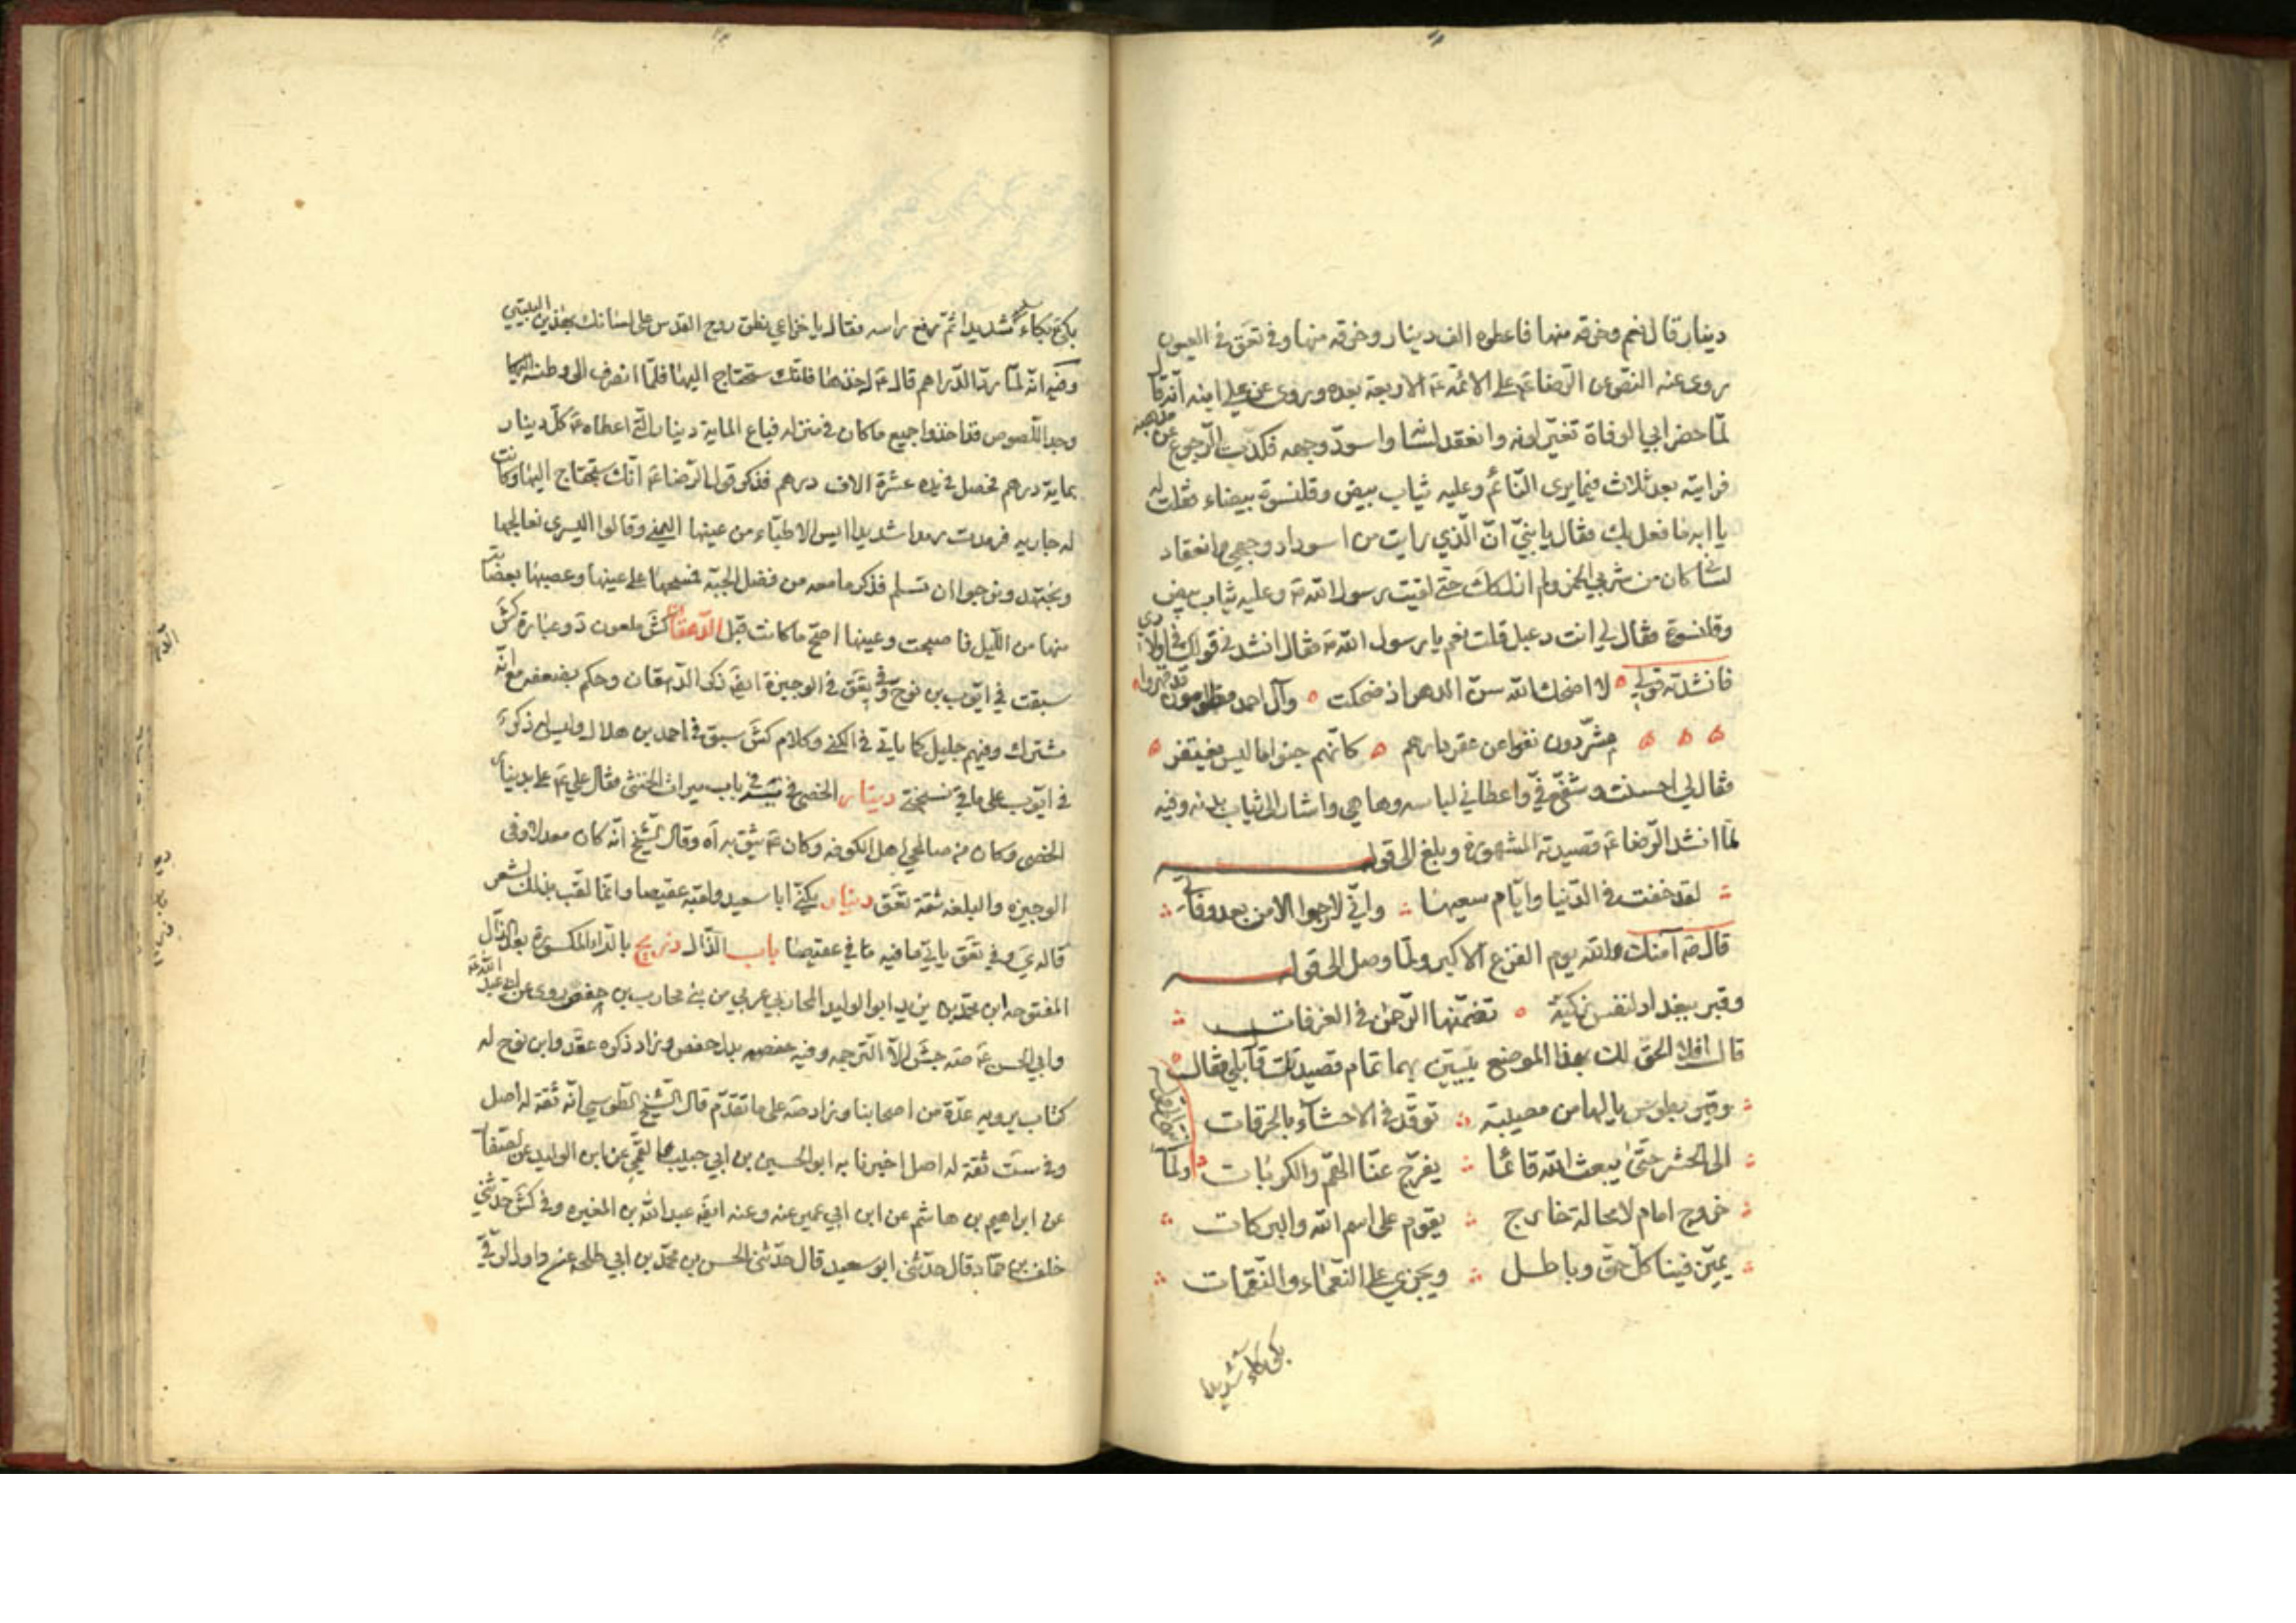 دينار قال نعم وخرقه منها فاعطوه الف دينار وخرقه منها وفي تعق في العيون
روى عنه النص عن الرضا ع على الائمة ع الاربعة بعده وروى عن علي ابنه انه قال
لما حضر ابي الوفاة تغير لونه وانعقد لسانه واسود وجهه فكدت الرجوع عن مذهبه
فرايته بعد ثلاث فيما يرى النائم وعليه ثياب بيض وقلنسوة بيضاء فقلت له
يا ابه ما فعل بك فقال يا بني ان الذي رايت من اسوداد وجهي وانعقاد
لساني كان من شربي الخمر ولم ازل كك حتى لقيت رسول الله ص وعليه ثياب بيض
وقلنسوة فقال لي انت دعبل قلت نعم يا رسول الله ص فقال انشدني قولك في اولادي
فانشدته قولي لا اضحك الله سن الدهر اذ ضحكت وآل احمد مظلومون قد قهروا
مشردون نفوا عن عقر دارهم كانهم جنوا ما ليس يغتفر
فقال لي احسنت وشفع في واعطاني ثيابه وها هي واشار الى ثياب بدنه وفيه
لما انشد الرضا ع قصيدته المشهورة وبلغ الى قوله
لقد خفت في الدنيا وايام سعيها واني لارجوا الامن بعد وفاتي
قال ع آمنك الله يوم الفزع الاكبر ولما وصل الى قوله
وقبر ببغداد لنفس زكية تضمنها الرحمن في الغرفات
قال افلا الحق لك بهذا الموضع بيتين بهما تمام قصيدتك قال بلى فقال
وقبر بطوس يا لها من مصيبة توقد في الاحشاء بالحرقات
الى الحشر حتى يبعث الله قائما يفرج عنا الهم والكربات ولما
خروج امام لا محالة خارج يقوم على اسم الله والبركات
يميز فينا كل حق وباطل ويجزي على النعماء والنقمات
بكى بكاء شديدا
بكى بكاء شديدا ثم رفع راسه فقال يا خزاعي نطق روح القدس على لسانك بهذين البيتين
وفيه انه لما رد الدراهم قال ع خذها فانك ستحتاج اليها فلما انصرف الى وطنه
وجد اللصوص قد اخذوا جميع ما كان في منزله فباع المایة دينار التي اعطاه ع كل دينار
بماية درهم فحصل في يده عشرة الاف درهم فذكر قول الرضا ع انك ستحتاج اليها وكانت
له جاريه فرمدت رمدا شديدا ايس الاطباء من عينها اليمنى وقالوا اليسرى نعالجها
ونجتهد ونرجوا ان تسلم فذكر ما معه من فضل الجبة فمسحها على عينها وعصبها بعصابة
منها من الليل فاصبحت وعينها اصح ما كانت قبل الدهقان كش ملعون د وعبارة كش
سبقت في ايوب بن نوح وفي تعق في الوجيزة ايضا ذكر الدهقان وحكم بضعفه مع انه
مشترك وفيهم جليل كما ياتي في الكنى وكلام كش سبق في احمد بن هلال وليس له ذكر
في ايوب على ما في نسختي دينار الخصي في باب ميراث الخنثى فقال علي ع علي بدينار
الخصي وكان من صالحي اهل الكوفه وكان ع يثق به آه وقال الشيخ انه كان معدلا وفي
الوجيزه والبلغه ثقة تعق دينار يكنى ابا سعيد ولقبه عقيصا وانما لقب بذلك لشعر
قاله ي وفي تعق ياتي ما فيه في عقيصا باب الذال ذريح بالراء المكسورة بعد الذال
المفتوحه ابن محمد بن يزيد ابو الوليد المحاربي عربي من بني محارب بن حفص روى عن ابي عبد الله ع
وابي الحسن ع صه جش الا الترجمه وفيه خصفه بدل حفص وزاد ذكره عقد وابن نوح له
كتاب يرويه عدة من اصحابنا وزاد صه على ما تقدم قال الشيخ الطوسي انه ثقة له اصل
وفي ست ثقة له اصل اخبرنا به ابو الحسين بن ابي جيد القمي عن ابن الوليد عن الصفار
عن ابراهيم بن هاشم عن ابن ابي عمير عنه وعنه ايضا عبد الله بن المغيره وفي كش حدثني
خلف بن حماد قال حدثني ابو سعيد قال حدثني الحسن بن محمد بن ابي طلحه عن داود الرقي